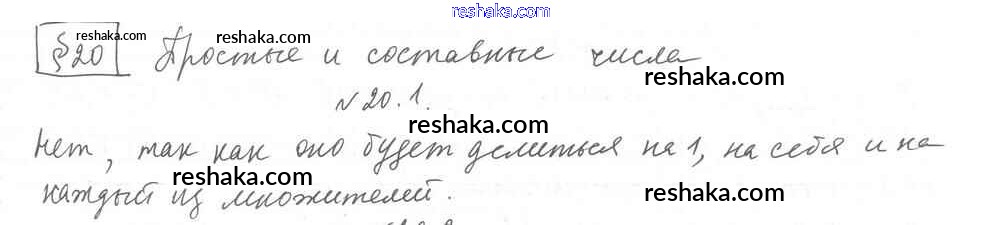 reshaka.com
§20 Простые и составные числа
reshaka.com
reshaka.com
№20.1.
reshaka.com
Нет, так как оно будет делиться на 1, на себя и на
каждый из множителей.
reshaka.com
reshaka.com